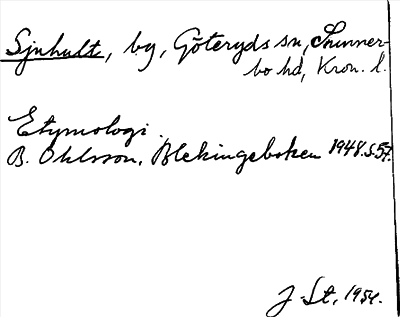 Sjnhult, by, Göteryds sn, Sunner-
bo hd, Kron. l.
Etymologi.
B. Ohlsson, Blekingeboken 1948. s. 57.
J. St, 1954.